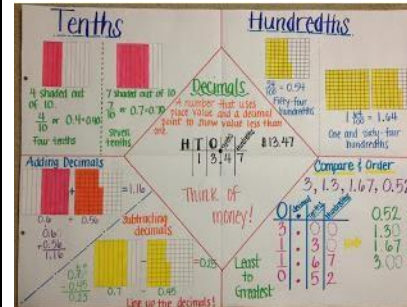 Tenths
4 shaded out
of 10.
4/10 or 0.4=0.40
four tenths
7 shaded out of 10
7/10 or 0.7=0.70
seven
tenths
Hundredths
54/100 = 0.54
Fifty-four
hundredths
1 64/100 = 1.64
One and sixty-four
hundredths
Decimals
A number that uses
place value and a decimal
point to show value less than
one.
H T O . Tenths Hundredths
1 3 . 4 7
$13.47
Think of
money!
Adding Decimals
+ =1.16
0.6 + 0.56
0.6
+0.56
1.16
Subtracting
decimals
- =0.25
0.7 - 0.45
-0.45
0.25
Line up the decimals!
Compare & Order
3, 1.3, 1.67, 0.52
O decimal Tenths Hundredths
3 . 0 0
1 . 3 0
1 . 6 7
0 . 5 2
Least
to
Greatest
0.52
1.30
1.67
3.00